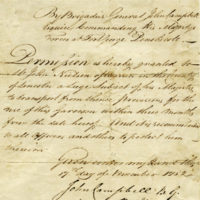 By Brigadier General John Campbell
Esquire Commanding His Majesty's
Forces at Fort George Penobscot
Permission is hereby granted to
Mr John of in the County
of Lincoln a Liege Subject of his Majesty
to transport from thence provisions for the
use of this garrison within three months
from the date hereof And
all Officers and others to protect him
therein
Given under my hand this
17th day of November 1782
John Campbell B.G.